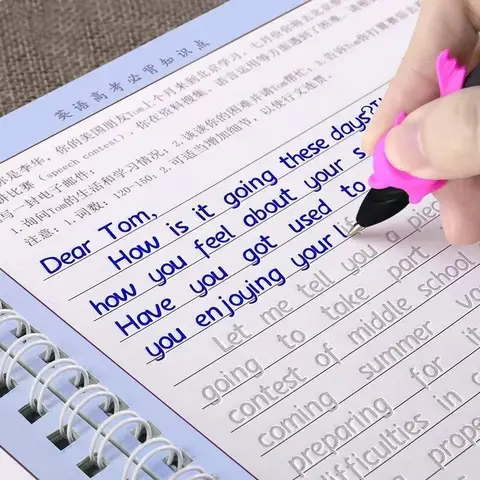 英语高考必背知识点
你是李华，你的美国朋友Tom上个月来到北京学习，七月份你将去北京
讲比赛 (speech contest)，你在资料搜集、语言运用等方面遇到了困难。请
写一封电子邮件：
1.询问Tom的生活和学习情况；2.谈谈你的困难并请Tom帮忙；3.告诉Tom你打算赛后
注意：1.词数：120-150；2.可适当增加细节，以使行文连贯。
Dear Tom,
How is it going these days?I
how you feel about your s
Have you got used to
you enjoying your li
Let me tell you a piec
going to take part
contest of middle school
coming summer va
preparing for it
difficulties in c
prope